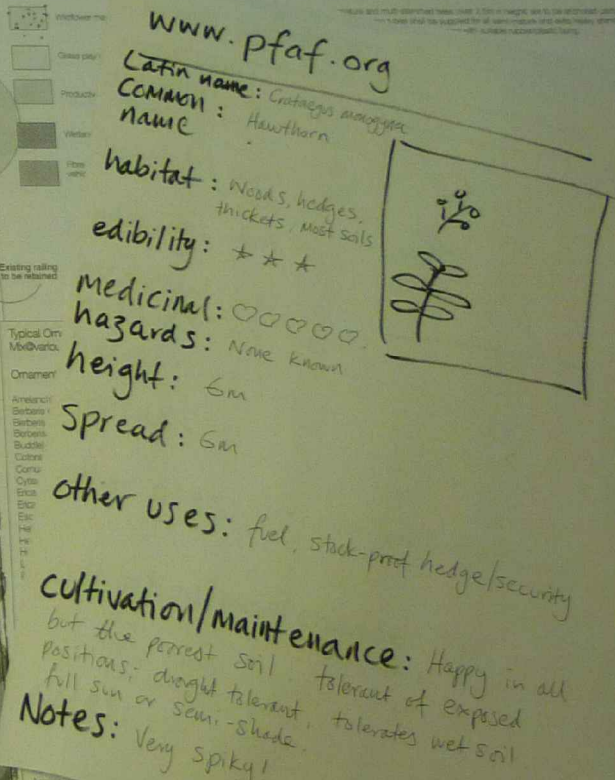 www.pfaf.org
Latin name: Crataegus monogyna
Common name: Hawthorn
habitat: Woods, hedges,
thickets, Most soils
edibility: ☆ ☆ ☆
medicinal: ♡ ♡ ♡ ♡ ♡
hazards: None known
height: 6m
Spread: 6m
other uses: fuel, stock-proof hedge/security
cultivation/maintenance: Happy in all
but the poorest soil. tolerant of exposed
positions; drought tolerant, tolerates wet soil
full sun or semi-shade.
Notes: Very spiky!
Existing railing
to be retained
Typical Orn
Ornamen
Berberis
Berberis
Berberis